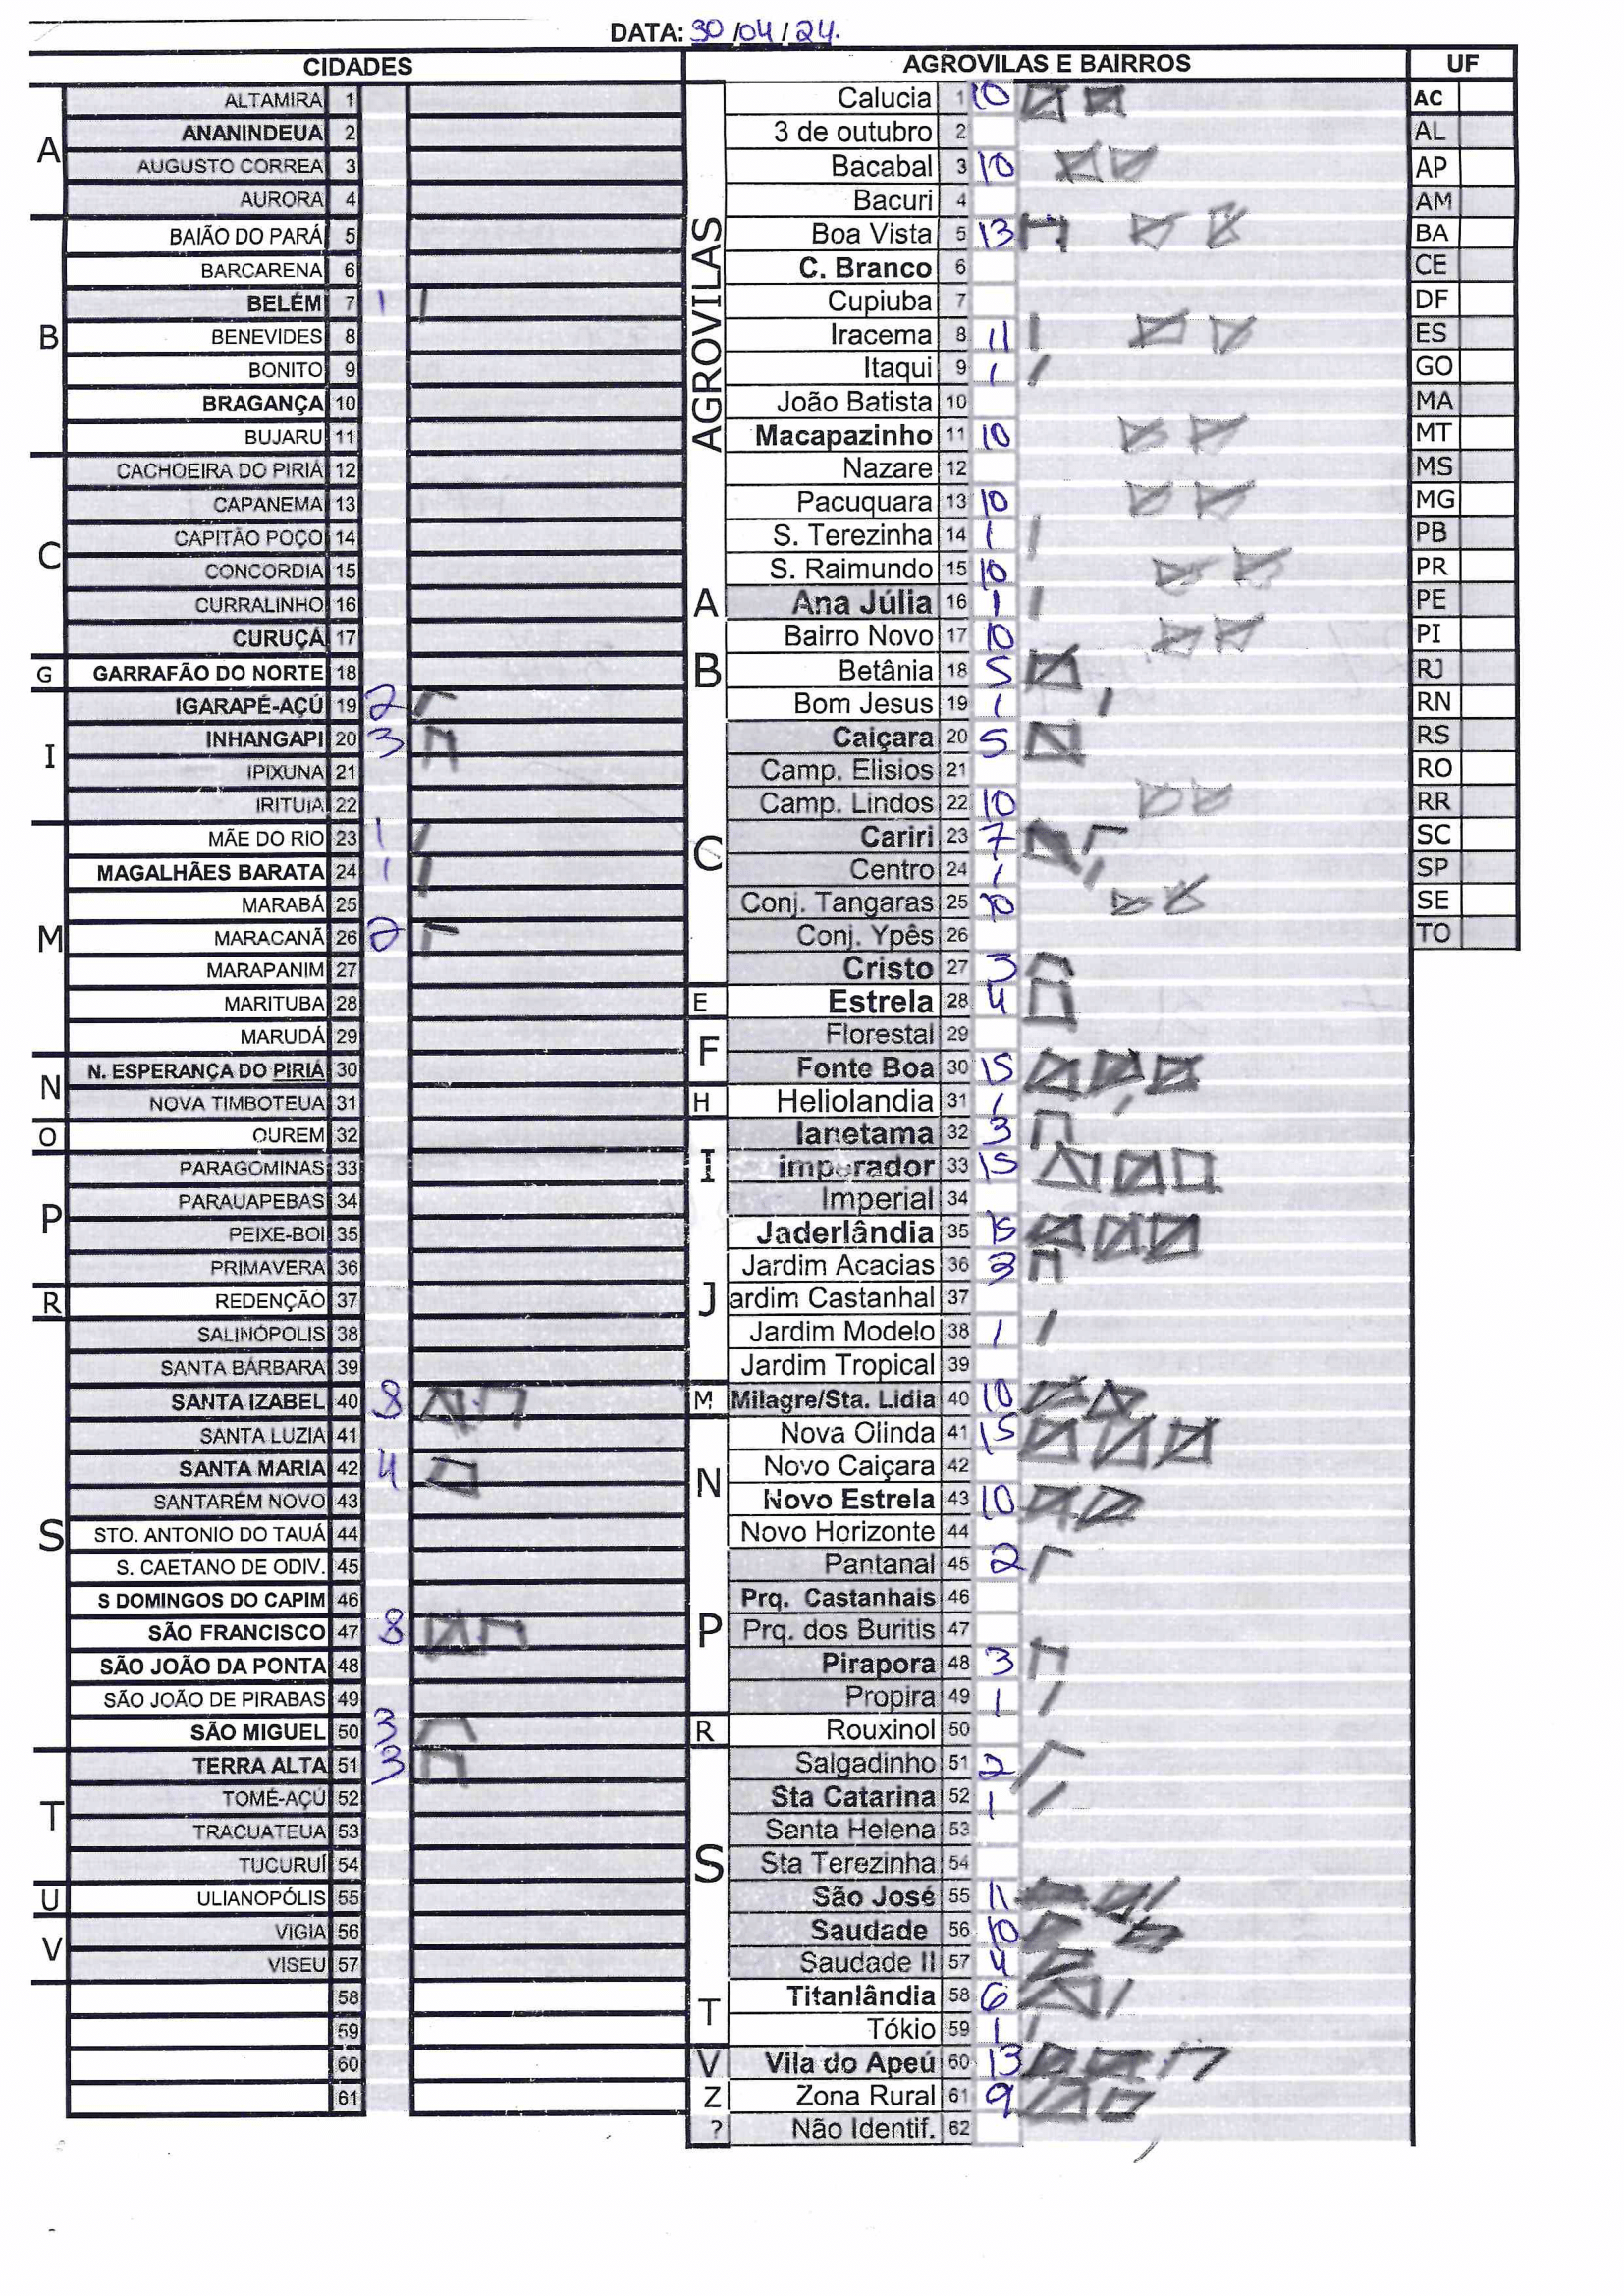 DATA: 30/04/24.
CIDADES
A
ALTAMIRA 1
ANANINDEUA 2
AUGUSTO CORREA 3
AURORA 4
B
BAIÃO DO PARÁ 5
BARCARENA 6
BELÉM 7 1
BENEVIDES 8
BONITO 9
BRAGANÇA 10
BUJARU 11
C
CACHOEIRA DO PIRIÁ 12
CAPANEMA 13
CAPITÃO POÇO 14
CONCORDIA 15
CURRALINHO 16
CURUÇÁ 17
G
GARRAFÃO DO NORTE 18
I
IGARAPÉ-AÇÚ 19 2
INHANGAPI 20 3
IPIXUNA 21
IRITUIA 22
M
MÃE DO RIO 23 1
MAGALHÃES BARATA 24 1
MARABÁ 25
MARACANÃ 26 2
MARAPANIM 27
MARITUBA 28
MARUDÁ 29
N
N. ESPERANÇA DO PIRIÁ 30
NOVA TIMBOTEUA 31
O
OUREM 32
P
PARAGOMINAS 33
PARAUAPEBAS 34
PEIXE-BOI 35
PRIMAVERA 36
R
REDENÇÃO 37
S
SALINÓPOLIS 38
SANTA BÁRBARA 39
SANTA IZABEL 40 8
SANTA LUZIA 41
SANTA MARIA 42 4
SANTARÉM NOVO 43
STO. ANTONIO DO TAUÁ 44
S. CAETANO DE ODIV. 45
S DOMINGOS DO CAPIM 46
SÃO FRANCISCO 47 8
SÃO JOÃO DA PONTA 48
SÃO JOÃO DE PIRABAS 49
SÃO MIGUEL 50 3
T
TERRA ALTA 51 3
TOMÉ-AÇÚ 52
TRACUATEUA 53
TUCURUÍ 54
U
ULIANOPÓLIS 55
V
VIGIA 56
VISEU 57
58
59
60
61
AGROVILAS E BAIRROS
AGROVILAS
Calucia 1 10
3 de outubro 2
Bacabal 3 10
Bacuri 4
Boa Vista 5 13
C. Branco 6
Cupiuba 7
Iracema 8 11
Itaqui 9 1
João Batista 10
Macapazinho 11 10
Nazare 12
Pacuquara 13 10
S. Terezinha 14 1
S. Raimundo 15 10
A
Ana Júlia 16 1
B
Bairro Novo 17 10
Betânia 18 5
Bom Jesus 19 1
C
Caiçara 20 5
Camp. Elisios 21
Camp. Lindos 22 10
Cariri 23 7
Centro 24 1
Conj. Tangaras 25 10
Conj. Ypês 26
Cristo 27 3
E
Estrela 28 4
F
Florestal 29
Fonte Boa 30 15
H
Heliolandia 31 1
I
Ianetama 32 3
imperador 33 15
Imperial 34
J
Jaderlândia 35 15
Jardim Acacias 36 3
ardim Castanhal 37
Jardim Modelo 38 1
Jardim Tropical 39
M
Milagre/Sta. Lidia 40 10
N
Nova Olinda 41 15
Novo Caiçara 42
Novo Estrela 43 10
Novo Horizonte 44
P
Pantanal 45 2
Prq. Castanhais 46
Prq. dos Buritis 47
Pirapora 48 3
Propira 49 1
R
Rouxinol 50
S
Salgadinho 51 2
Sta Catarina 52 1
Santa Helena 53
Sta Terezinha 54
São José 55 11
Saudade 56 10
Saudade II 57 4
T
Titanlândia 58 6
Tókio 59 1
V
Vila do Apeú 60 13
Z
Zona Rural 61 9
?
Não Identif. 62
UF
AC
AL
AP
AM
BA
CE
DF
ES
GO
MA
MT
MS
MG
PB
PR
PE
PI
RJ
RN
RS
RO
RR
SC
SP
SE
TO